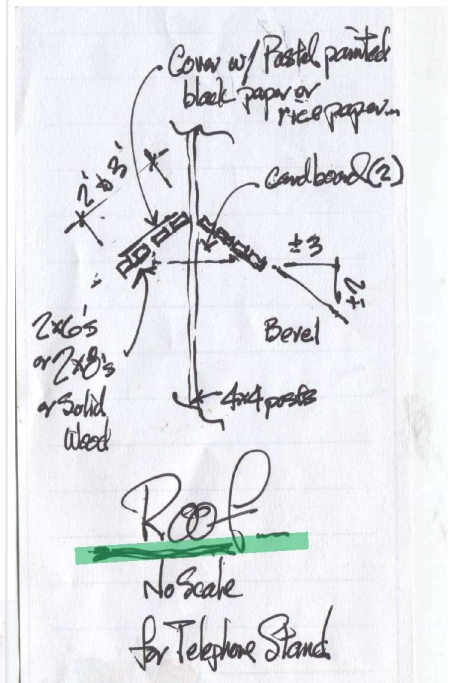 Cover w/ Pastel painted
black paper or
rice paper...
2' to 3'
cardboard (2)
±3
±2
Bevel
2x6's
or 2x8's
or Solid
Wood
4x4 posts
Roof
No Scale
for Telephone Stand